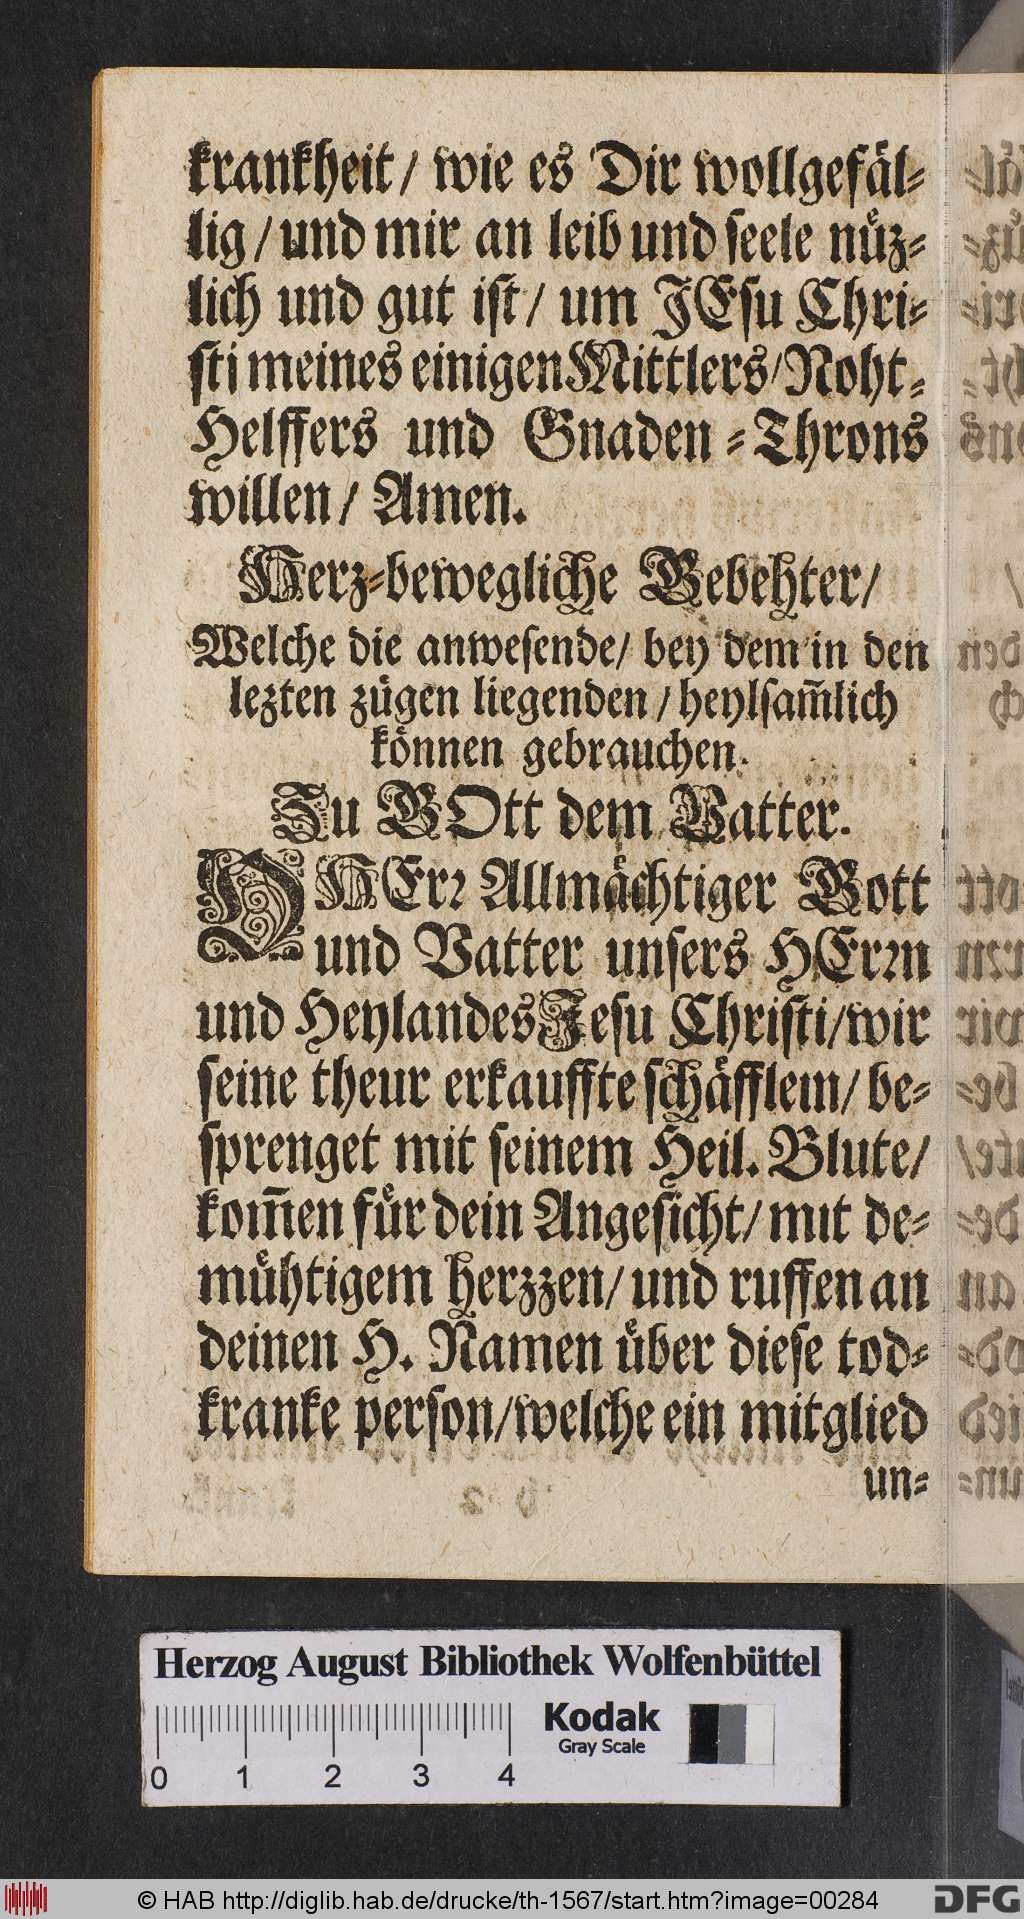 krankheit / wie es Dir wollgefäl-
lig / und mir an leib und seele nüz-
lich und gut ist / um JEsu Chri-
sti meines einigen Mittlers / Noht-
Helffers und Gnaden-Throns
willen / Amen.
Herz-bewegliche Gebehter /
Welche die anwesende / bey dem in den
lezten zügen liegenden / heylsam̃lich
können gebrauchen.
Zu GOtt dem Vatter.
O HErr Allmächtiger Gott
und Vatter unsers HErrn
und Heylandes Jesu Christi / wir
seine theur erkauffte schäfflein / be-
sprenget mit seinem Heil. Blute /
kom̃en für dein Angesicht / mit de-
mühtigem herzzen / und ruffen an
deinen H. Namen über diese tod-
kranke person / welche ein mitglied
un-
Herzog August Bibliothek Wolfenbüttel
Kodak
Gray Scale
0 1 2 3 4
© HAB http://diglib.hab.de/drucke/th-1567/start.htm?image=00284
DFG